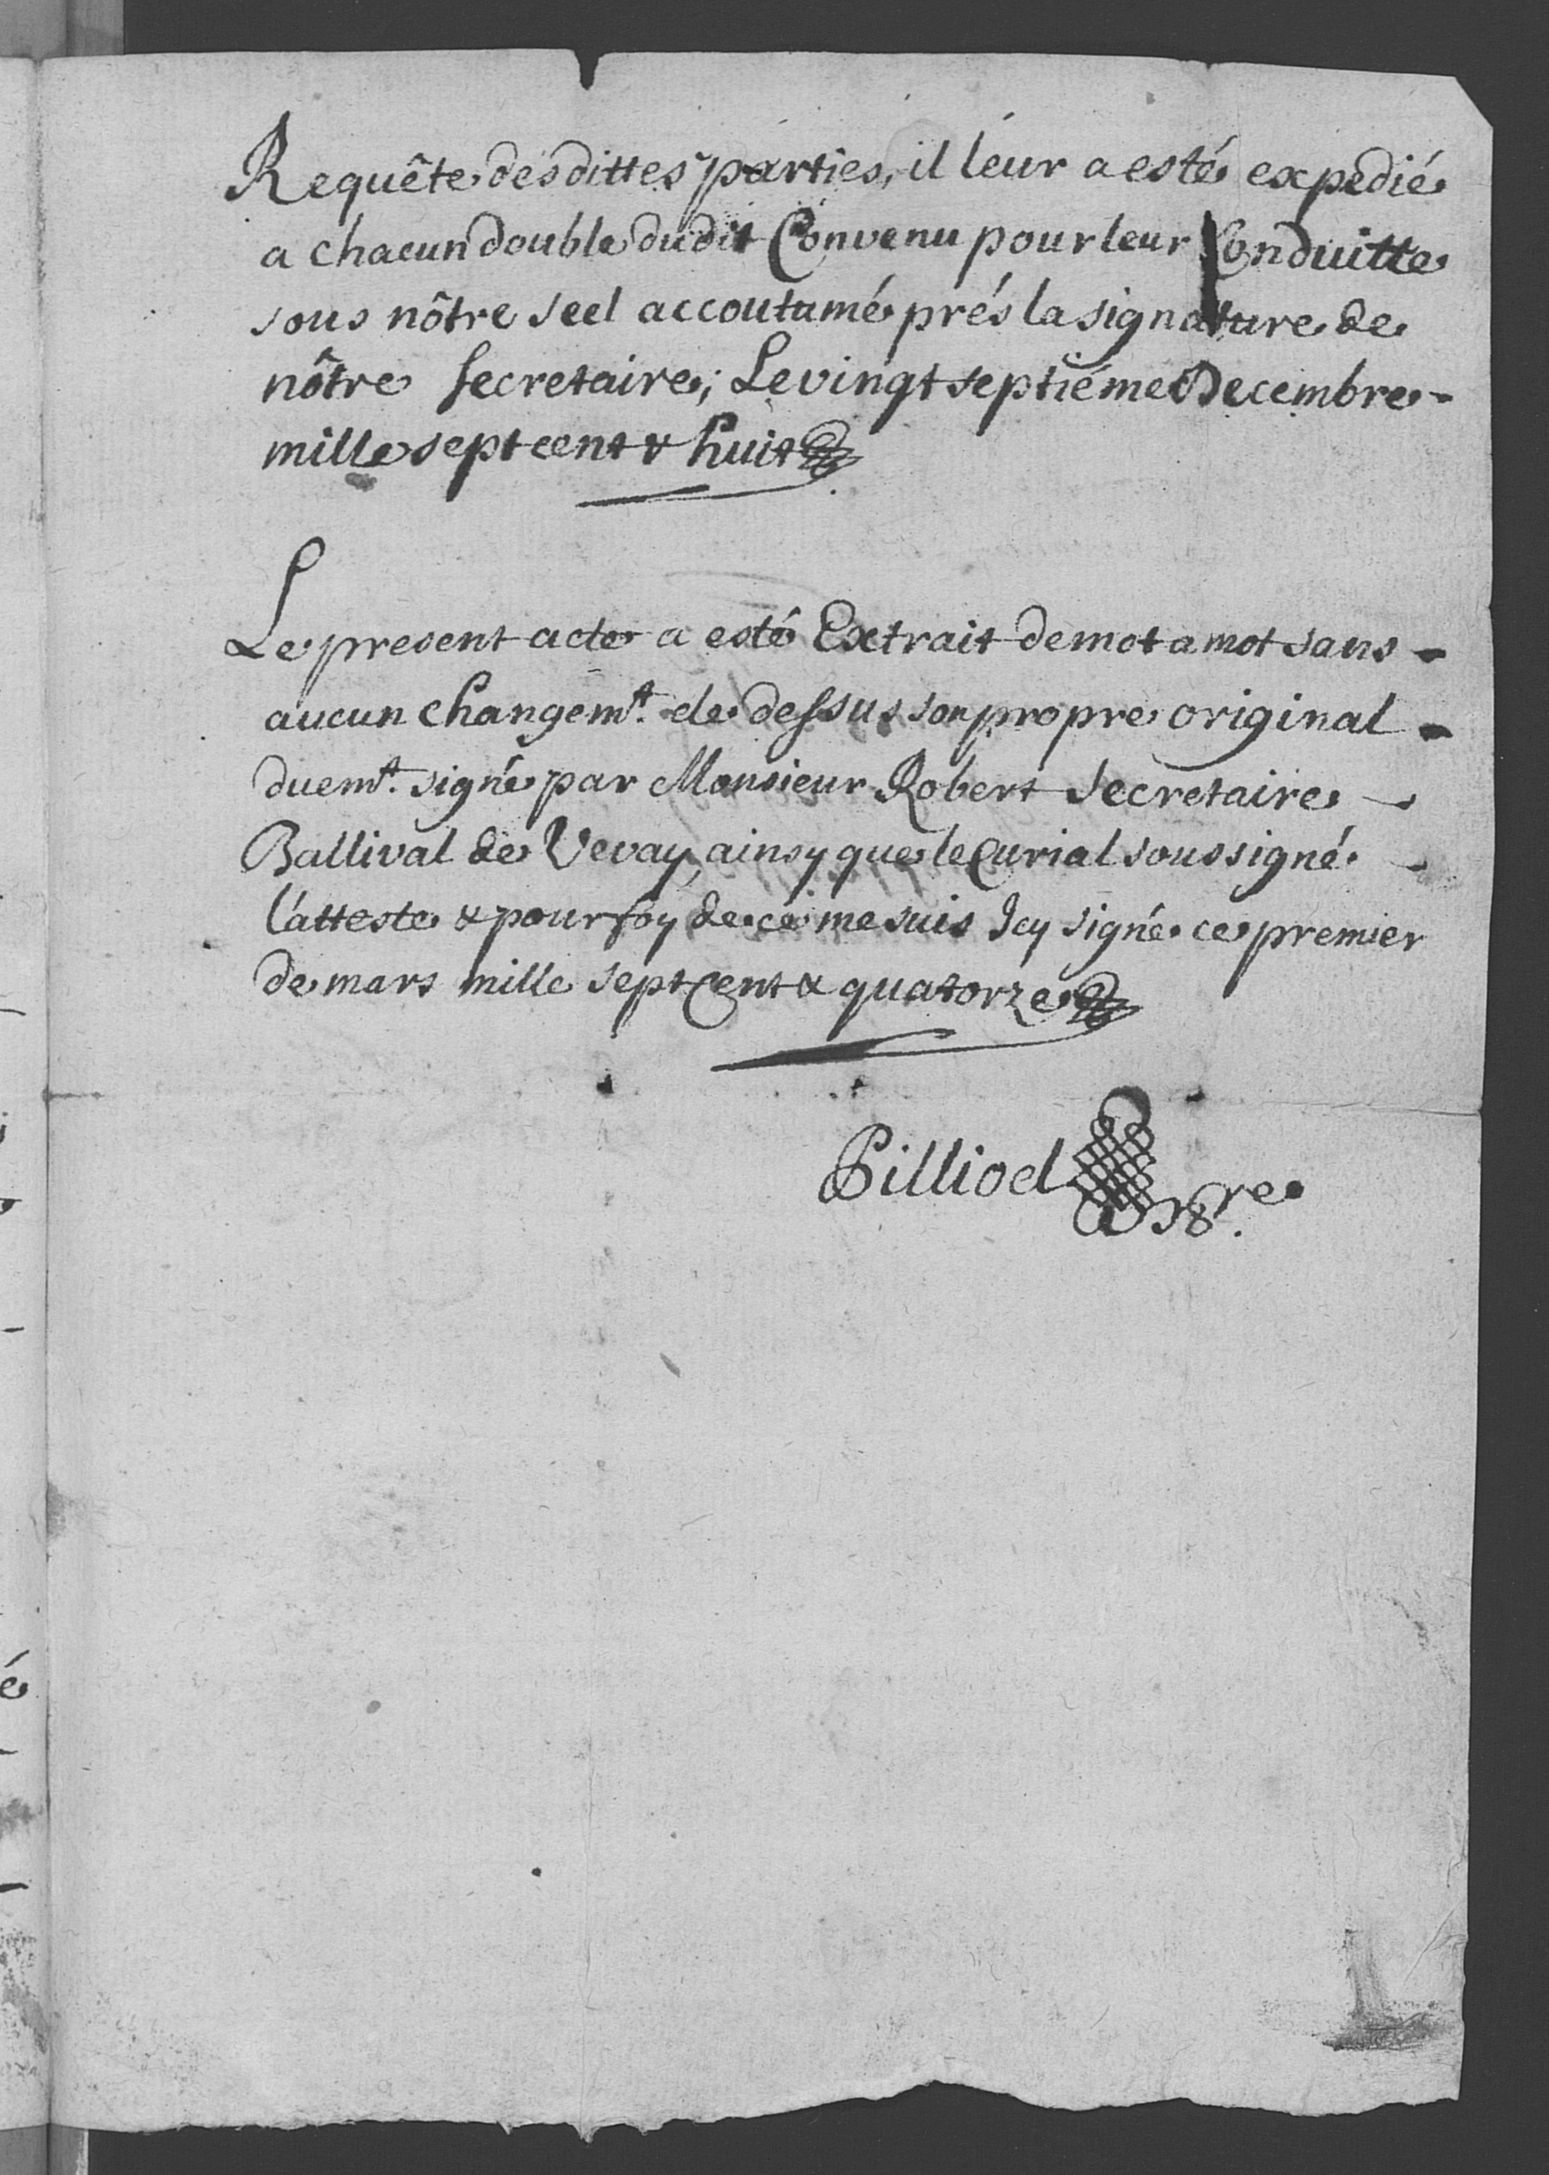 Requête desdittes parties, il leur a esté expedié
a chacun double dudit Convenu pour leur Conduitte
sous nôtre seel accoutumé prés la signature de
nôtre secretaire; Le vingt septiéme Decembre -
mille sept cent & huit
Le present acte a esté Extrait de mot a mot sans -
aucun changemt. de dessus son propre original -
duemt. signé par Monsieur Robert secretaire -
Ballival de Vevay, ainsy que le Curial soussigné -
l'atteste & pour foy de ce me suis Icy signé ce premier
de mars mille sept Cent & quatorze
Pilliod